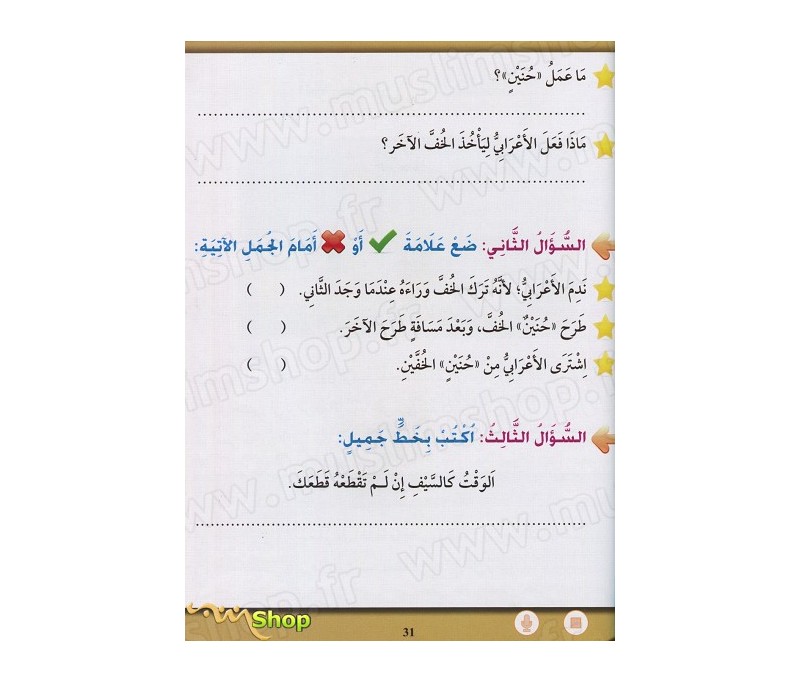 مَا عَمَلُ «حُنَيْنٍ»؟
مَاذَا فَعَلَ الأَعْرَابِيُّ لِيَأْخُذَ الخُفَّ الآخَرَ؟
السُّؤَالُ الثَّانِي: ضَعْ عَلَامَةَ ✔ أَوْ ✖ أَمَامَ الجُمَلِ الآتِيَةِ:
نَدِمَ الأَعْرَابِيُّ؛ لأَنَّهُ تَرَكَ الخُفَّ وَرَاءَهُ عِنْدَمَا وَجَدَ الثَّانِي. ( )
طَرَحَ «حُنَيْنٌ» الخُفَّ، وَبَعْدَ مَسَافَةٍ طَرَحَ الآخَرَ. ( )
اِشْتَرَى الأَعْرَابِيُّ مِنْ «حُنَيْنٍ» الخُفَّيْنِ. ( )
السُّؤَالُ الثَّالِثُ: اُكْتُبْ بِخَطٍّ جَمِيلٍ:
اَلوَقْتُ كَالسَّيْفِ إِنْ لَـمْ تَقْطَعْهُ قَطَعَكَ.
31
Shop
www.muslimshop.fr